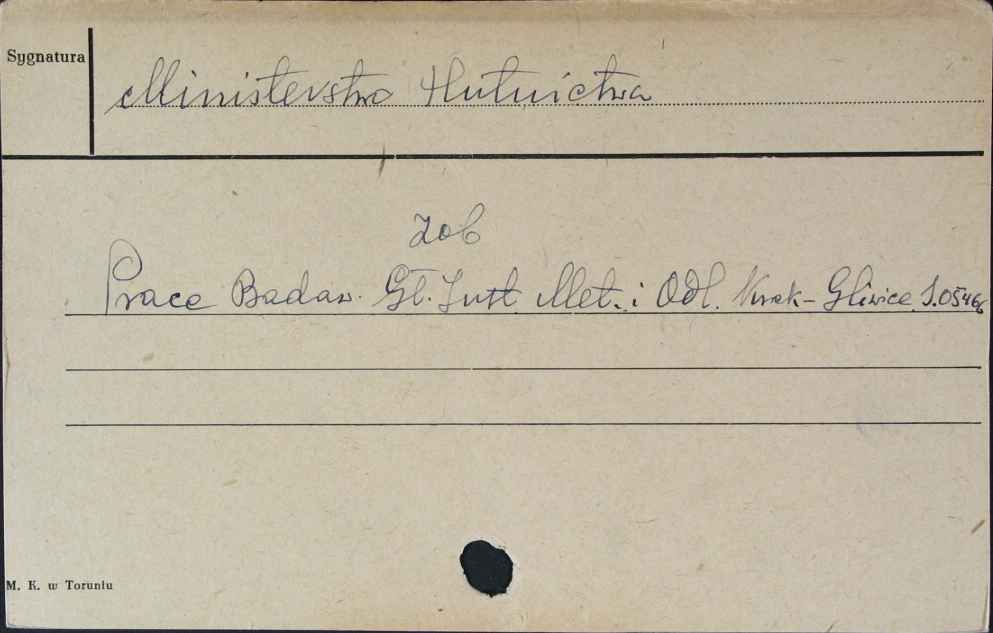 Sygnatura
Ministerstwo Hutnictwa
zob
Prace Badaw. Gł. Inst. Met. i Odl. Krak-Gliwice S.0546
M. K. w Toruniu